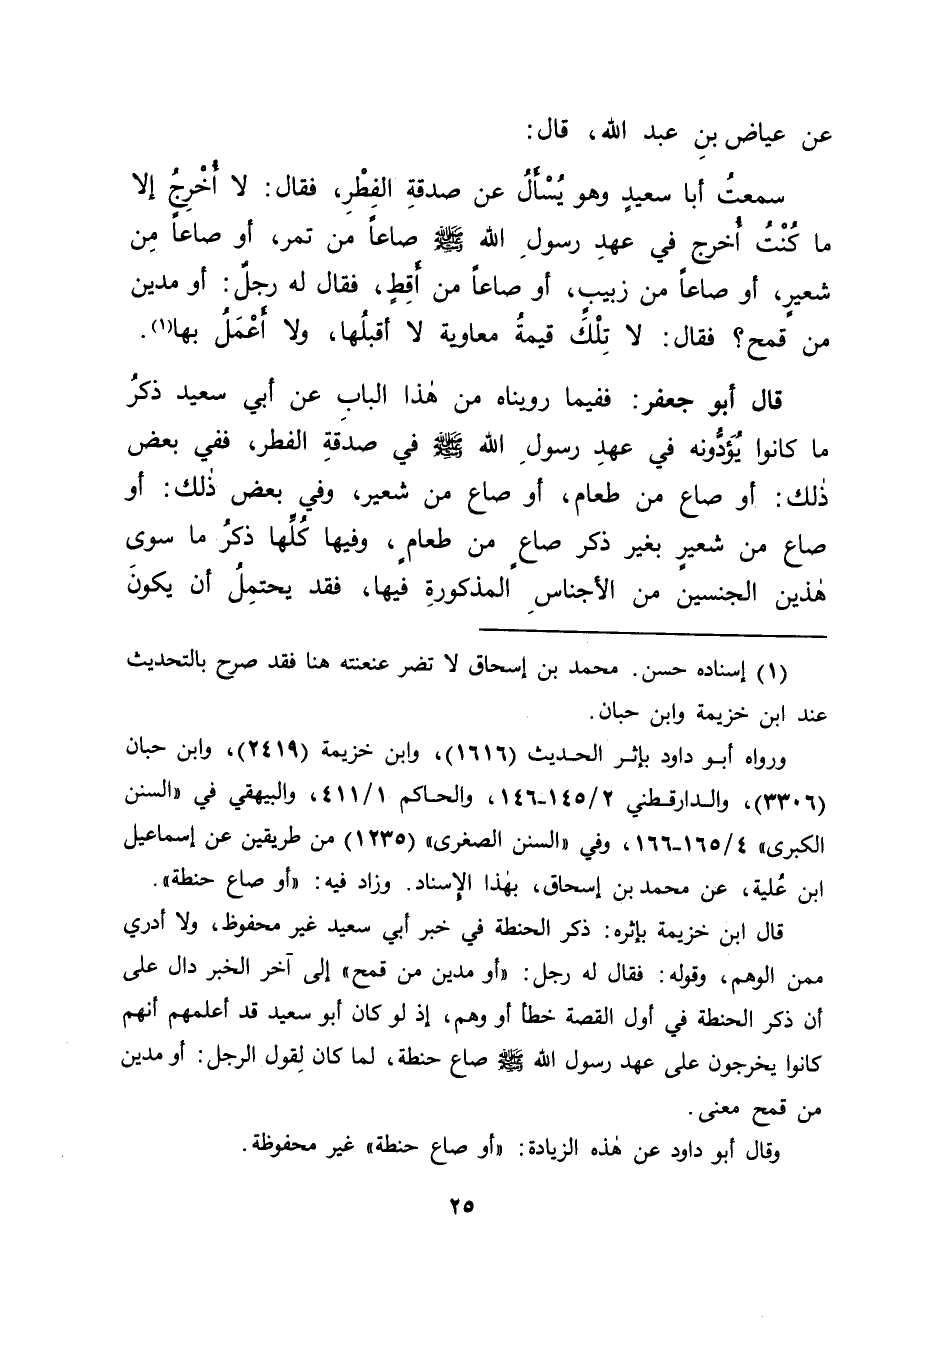 عن عياض بنِ عبد الله، قال:
سمعتُ أبا سعيدٍ وهو يُسْأَلُ عن صدقةِ الفِطْرِ، فقال: لا أُخْرِجُ إلا
ما كُنْتُ أُخرج في عهدِ رسولِ الله ﷺ صاعاً من تمر، أو صاعاً مِن
شعيرٍ، أو صاعاً من زبيبٍ، أو صاعاً من أَقِطٍ، فقال له رجلٌ: أو مدين
من قمح؟ فقال: لا تِلْكَ قيمةُ معاوية لا أقبلُها، ولا أَعْمَلُ بها(١).
قال أبو جعفر: ففيما رويناه من هٰذا البابِ عن أبي سعيد ذكرُ
ما كانوا يُؤَدُّونه في عهدِ رسولِ الله ﷺ في صدقةِ الفطر، ففي بعض
ذٰلك: أو صاع من طعام، أو صاع من شعير، وفي بعض ذٰلك: أو
صاع من شعيرٍ بغير ذكر صاعٍ من طعامٍ، وفيها كُلِّها ذكرُ ما سوى
هٰذين الجنسين من الأجناسِ المذكورةِ فيها، فقد يحتمِلُ أن يكونَ
(١) إسناده حسن. محمد بن إسحاق لا تضر عنعنته هنا فقد صرح بالتحديث
عند ابن خزيمة وابن حبان.
ورواه أبو داود بإثر الحديث (١٦١٦)، وابن خزيمة (٢٤١٩)، وابن حبان
(٣٣٠٦)، والدارقطني ١٤٥/٢-١٤٦، والحاكم ٤١١/١، والبيهقي في «السنن
الكبرى» ١٦٥/٤-١٦٦، وفي «السنن الصغرى» (١٢٣٥) من طريقين عن إسماعيل
ابن عُلية، عن محمد بن إسحاق، بهٰذا الإسناد. وزاد فيه: «أو صاع حنطة».
قال ابن خزيمة بإثره: ذكر الحنطة في خبر أبي سعيد غير محفوظ، ولا أدري
ممن الوهم، وقوله: فقال له رجل: «أو مدين من قمح» إلى آخر الخبر دال على
أن ذكر الحنطة في أول القصة خطأ أو وهم، إذ لو كان أبو سعيد قد أعلمهم أنهم
كانوا يخرجون على عهد رسول الله ﷺ صاع حنطة، لما كان لِقول الرجل: أو مدين
من قمح معنى.
وقال أبو داود عن هٰذه الزيادة: «أو صاع حنطة» غير محفوظة.
٢٥